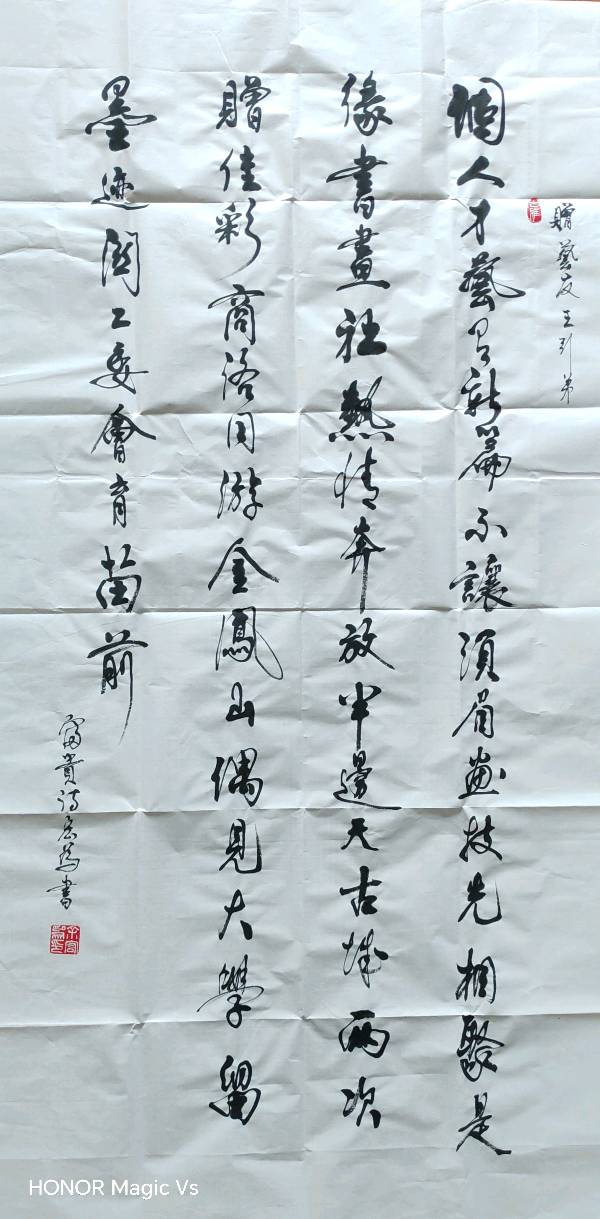 贈藝友王引弟
個人才藝呈新篇不讓須眉畫技先相聚是
緣書畫社熱情奔放半邊天古城兩次
贈佳彩商洛同游金鳳山偶見大學留
墨迹關工委會育苗前
富貴詩
書
HONOR Magic Vs